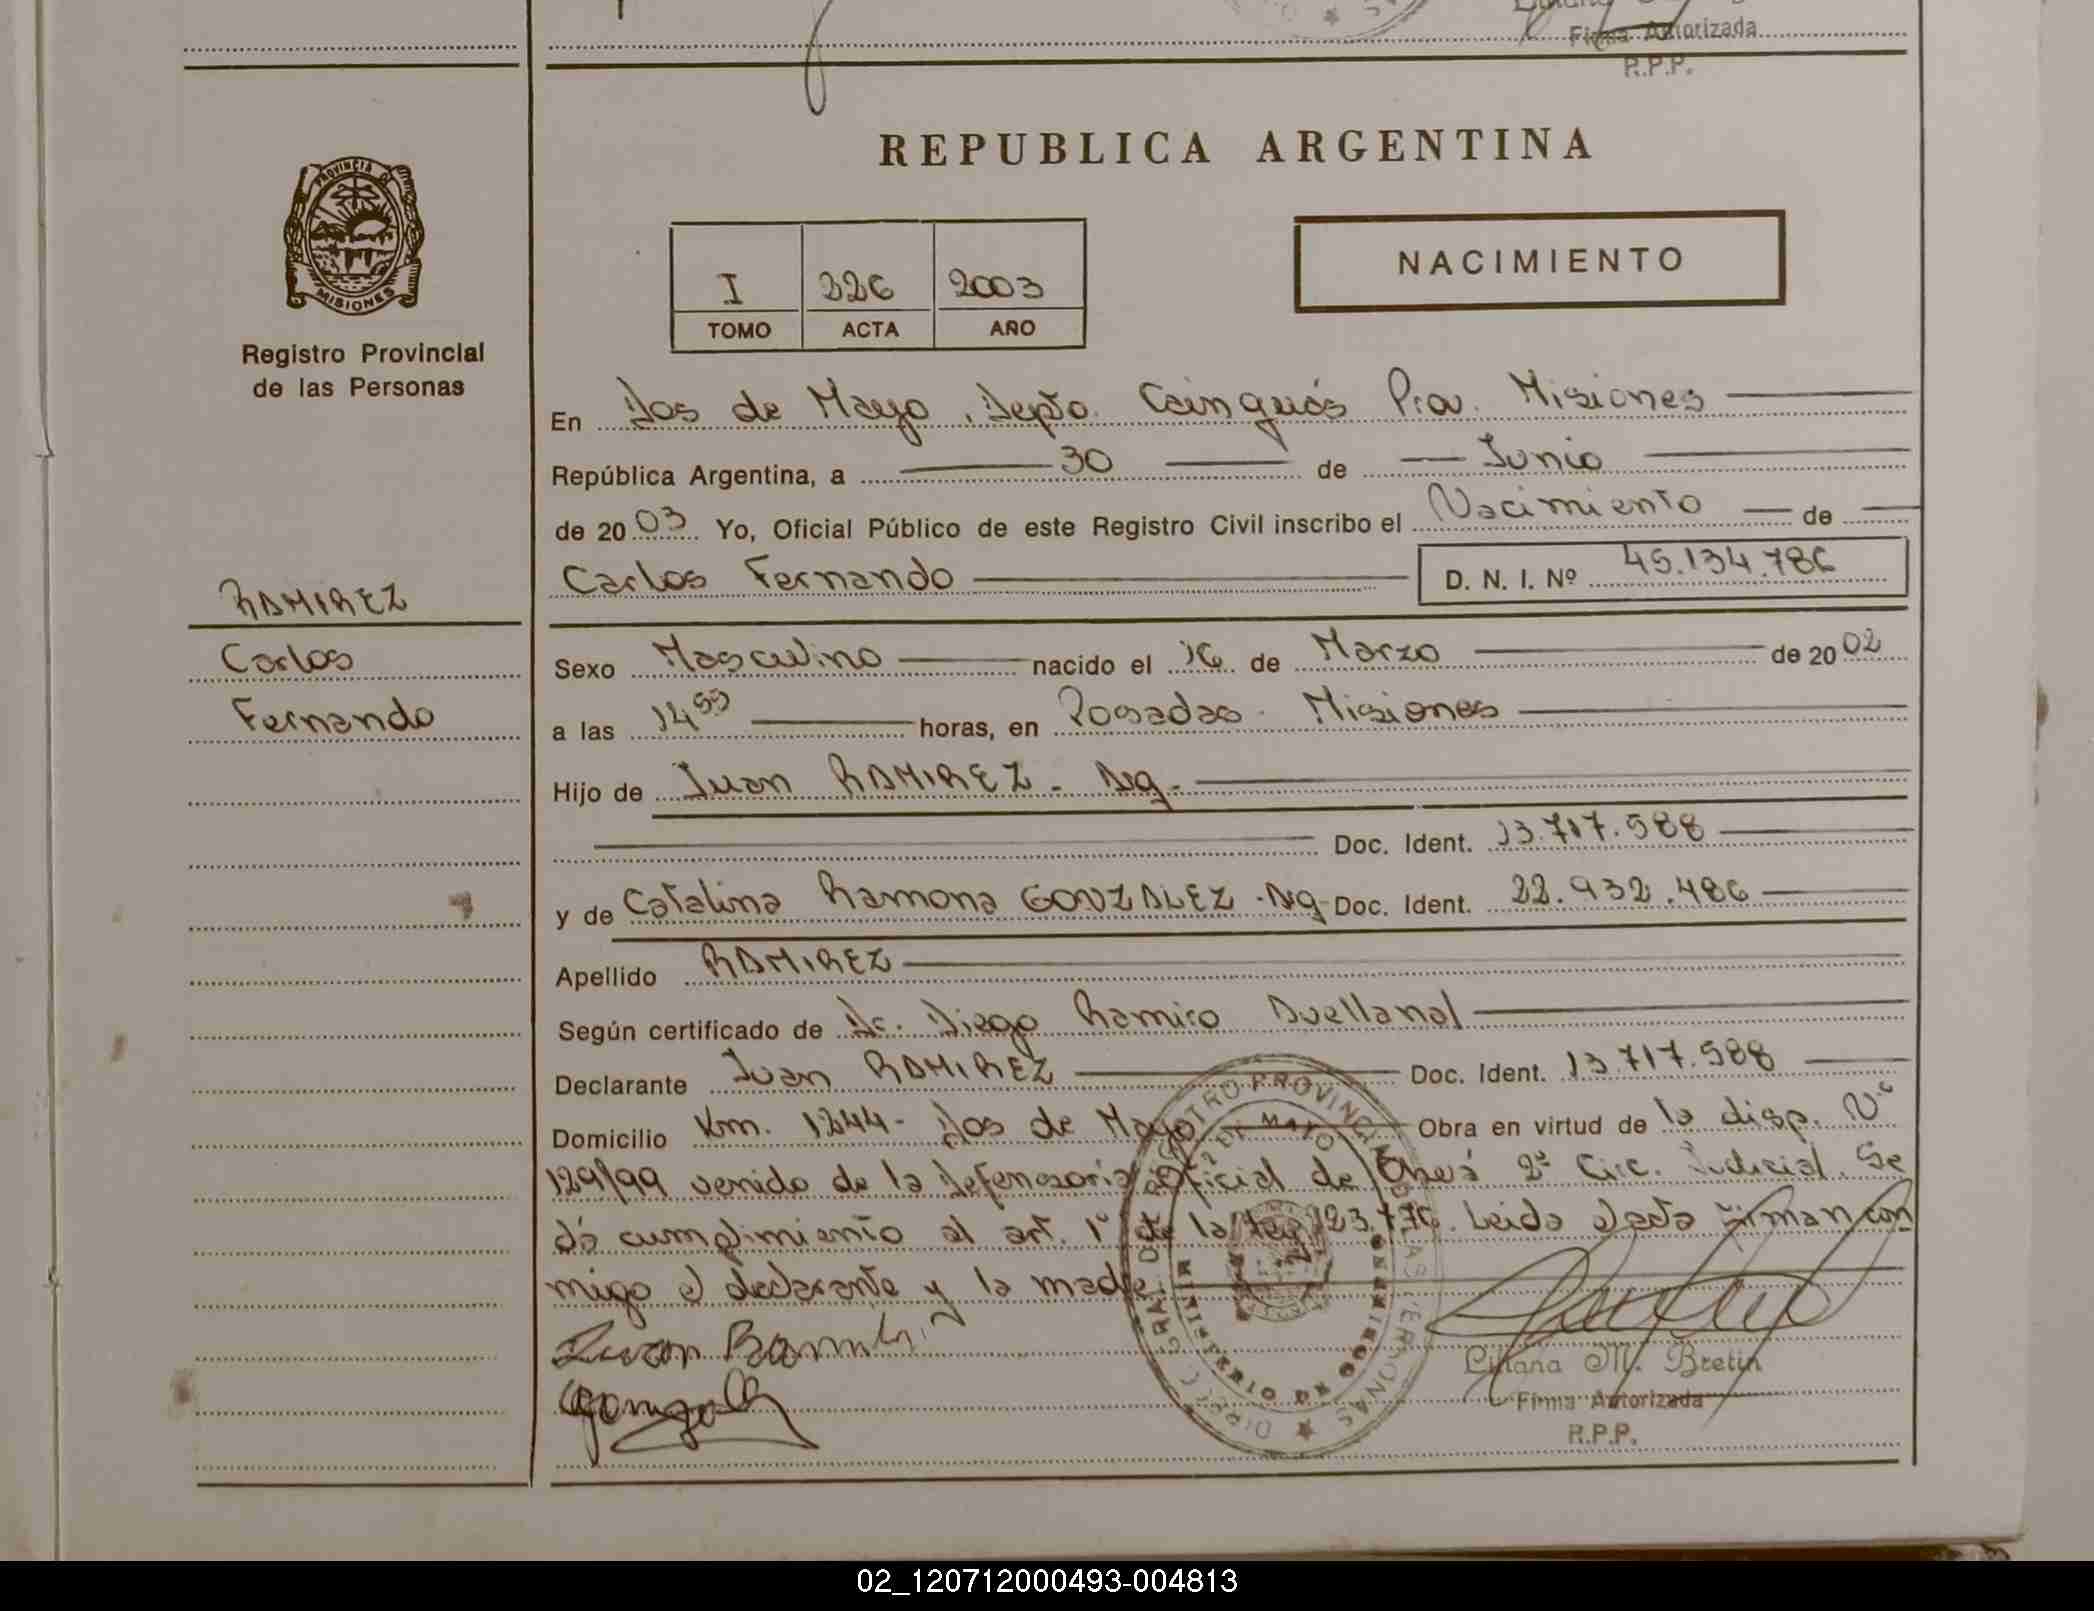 Firma Autorizada
R.P.P.
REPUBLICA ARGENTINA
PROVINCIA DE
MISIONES
Registro Provincial
de las Personas
NACIMIENTO
I 226 2003
TOMO ACTA AÑO
En Dos de Mayo, Depto. Cainguás Prov. Misiones
República Argentina, a 30 de Junio
de 2003 Yo, Oficial Público de este Registro Civil inscribo el Nacimiento de
Carlos Fernando D. N. I. Nº 45.134.786
RAMIREZ
Carlos
Fernando
Sexo Masculino nacido el 16 de Marzo de 2002
a las 14 55 horas, en Posadas - Misiones
Hijo de Juan RAMIREZ - Arg.
Doc. Ident. 13.717.588
y de Catalina Ramona GONZALEZ - Arg Doc. Ident. 22.932.486
Apellido RAMIREZ
Según certificado de Dr. Diego Ramiro Avellanal
Declarante Juan RAMIREZ Doc. Ident. 13.717.588
Domicilio Km. 1244 - Dos de Mayo Obra en virtud de la disp. Nº
129/99 venido de la defensoria oficial de Oberá 2ª Circ. Judicial. Se
dá cumplimiento al art. 1º de la ley 23.776. Leida el acta firman con
migo el declarante y la madre
Liliana M. Bretin
Firma Autorizada
R.P.P.
02_120712000493-004813